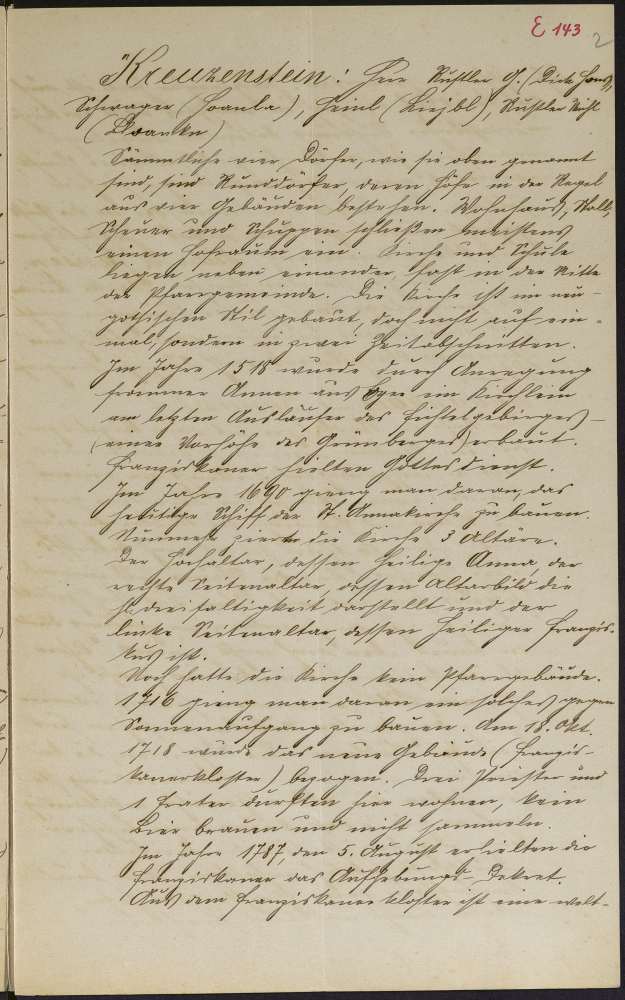 E 143
2
Kreuzenstein: Hier Rustler G. (Dick Hans),
Schwager (Hoanla), Heinl (Liejbl), Rustler Mich
(Broanka)
Sämmtliche vier Dörfer, wie sie oben genannt
sind, sind Runddörfer, deren Höfe in der Regel
aus vier Gebäuden bestehen. Wohnhaus, Stall,
Scheuer und Schuppen schließen meistens
einen Hofraum ein. Kirche und Schule
liegen neben einander, fast in der Mitte
der Pfarrgemeinde. Die Kirche ist im neu-
gothischen Stil gebaut, doch nicht auf ein-
mal, sondern in zwei Zeitabschnitten.
Im Jahre 1518 wurde durch Anregung
frommer Annen aus Eger ein Kirchlein
am letzten Ausläufer des Fichtelgebirges –
(einer Vorhöhe des Grünberges) erbaut.
Franziskaner hielten Gottesdienst.
Im Jahre 1690 gieng man daran, das
heutige Schiff der St. Annakirche zu bauen.
Nunmehr zieren die Kirche 3 Altäre.
Der Hochaltar, dessen Heilige Anna, der
rechte Seitenaltar, dessen Altarbild die
hl. Dreifaltigkeit darstellt und der
linke Seitenaltar, dessen Heiliger Franzis-
kus ist.
Noch hatte die Kirche kein Pfarrgebäude.
1716 gieng man daran ein solches gegen
Sonnenaufgang zu bauen. Am 18. Okt.
1718 wurde das neue Gebäude (Franzis-
kanerkloster) bezogen. Drei Priester und
1 Frater durften hier wohnen, kein
Bier brauen und nicht sammeln.
Im Jahre 1787, den 5. August erhielten die
Franziskaner das Aufhebungs-Dekret.
Aus dem Franziskanerkloster ist eine welt-